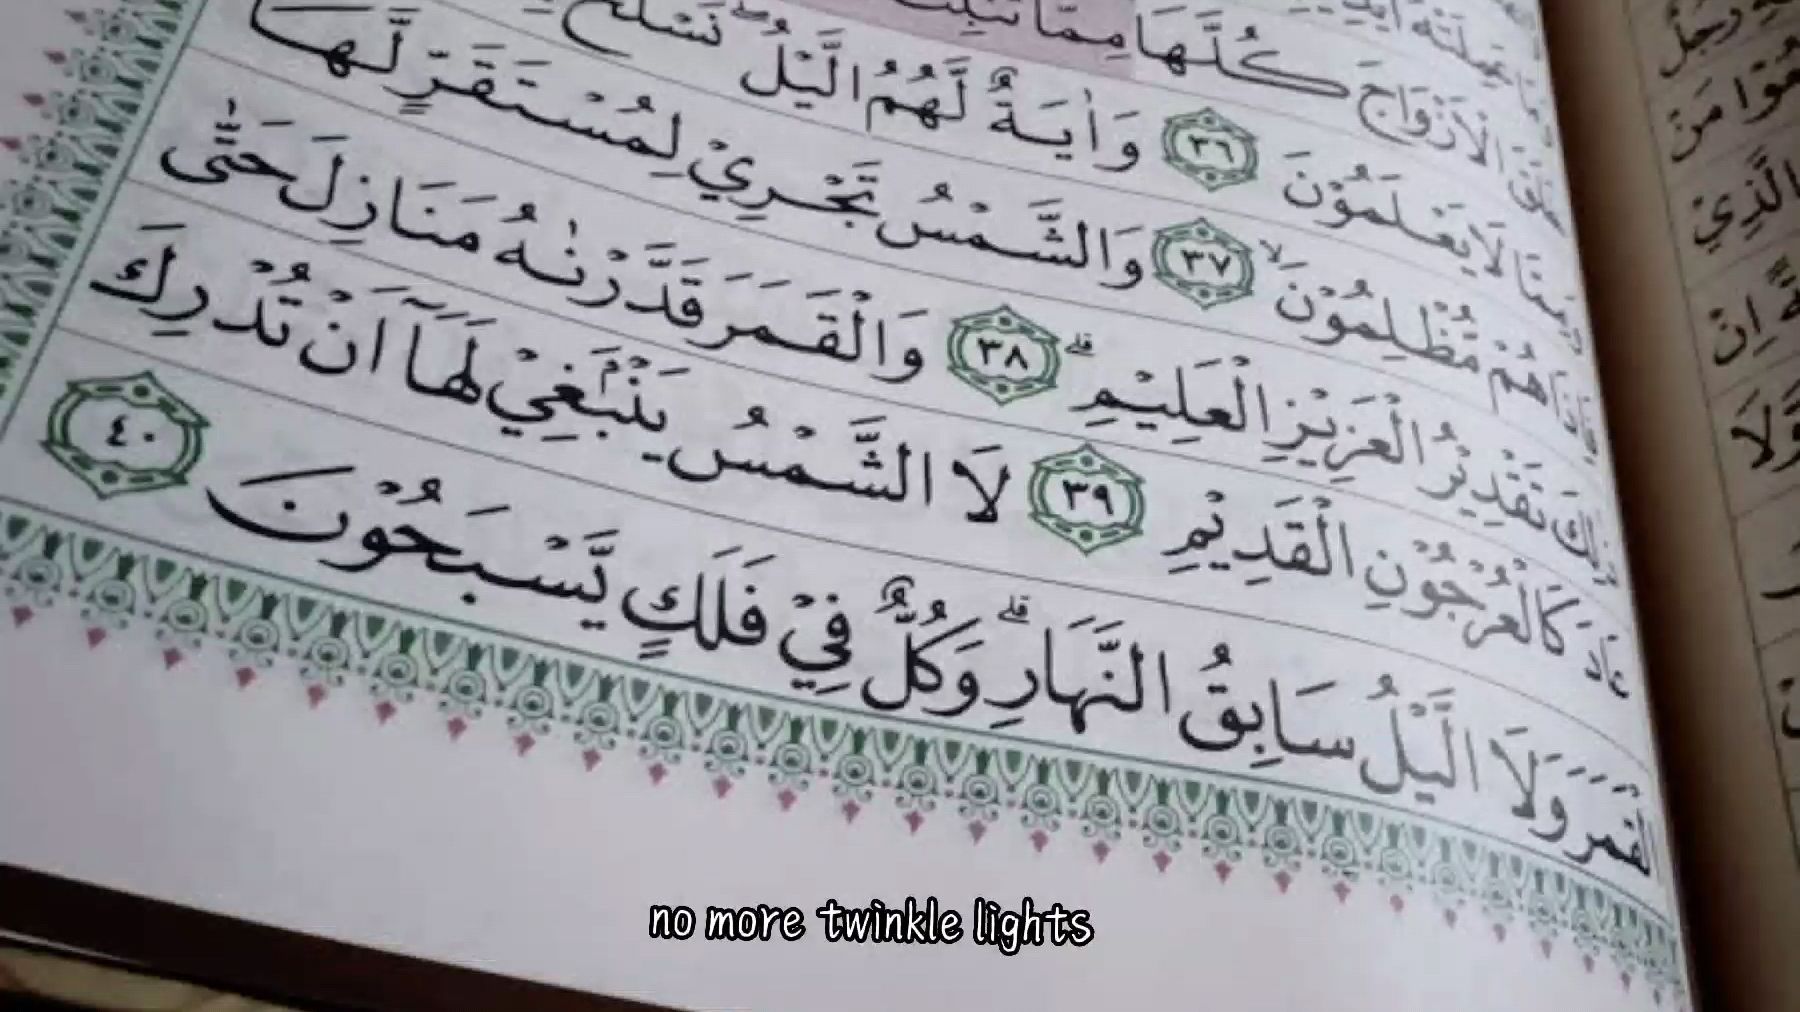 كُلَّهَا مِمَّا تُنْۢبِتُ
خَلَقَ الْاَزْوَاجَ
لَا يَعْلَمُوْنَ ٣٦ وَاٰيَةٌ لَّهُمُ الَّيْلُ ۖ نَسْلَخُ
هُمْ مُّظْلِمُوْنَۙ ٣٧ وَالشَّمْسُ تَجْرِيْ لِمُسْتَقَرٍّ لَّهَا
ذٰلِكَ تَقْدِيْرُ الْعَزِيْزِ الْعَلِيْمِۗ ٣٨ وَالْقَمَرَ قَدَّرْنٰهُ مَنَازِلَ حَتّٰى
عَادَ كَالْعُرْجُوْنِ الْقَدِيْمِ ٣٩ لَا الشَّمْسُ يَنْۢبَغِيْ لَهَآ اَنْ تُدْرِكَ
الْقَمَرَ وَلَا الَّيْلُ سَابِقُ النَّهَارِۗ وَكُلٌّ فِيْ فَلَكٍ يَّسْبَحُوْنَ ٤٠
no more twinkle lights